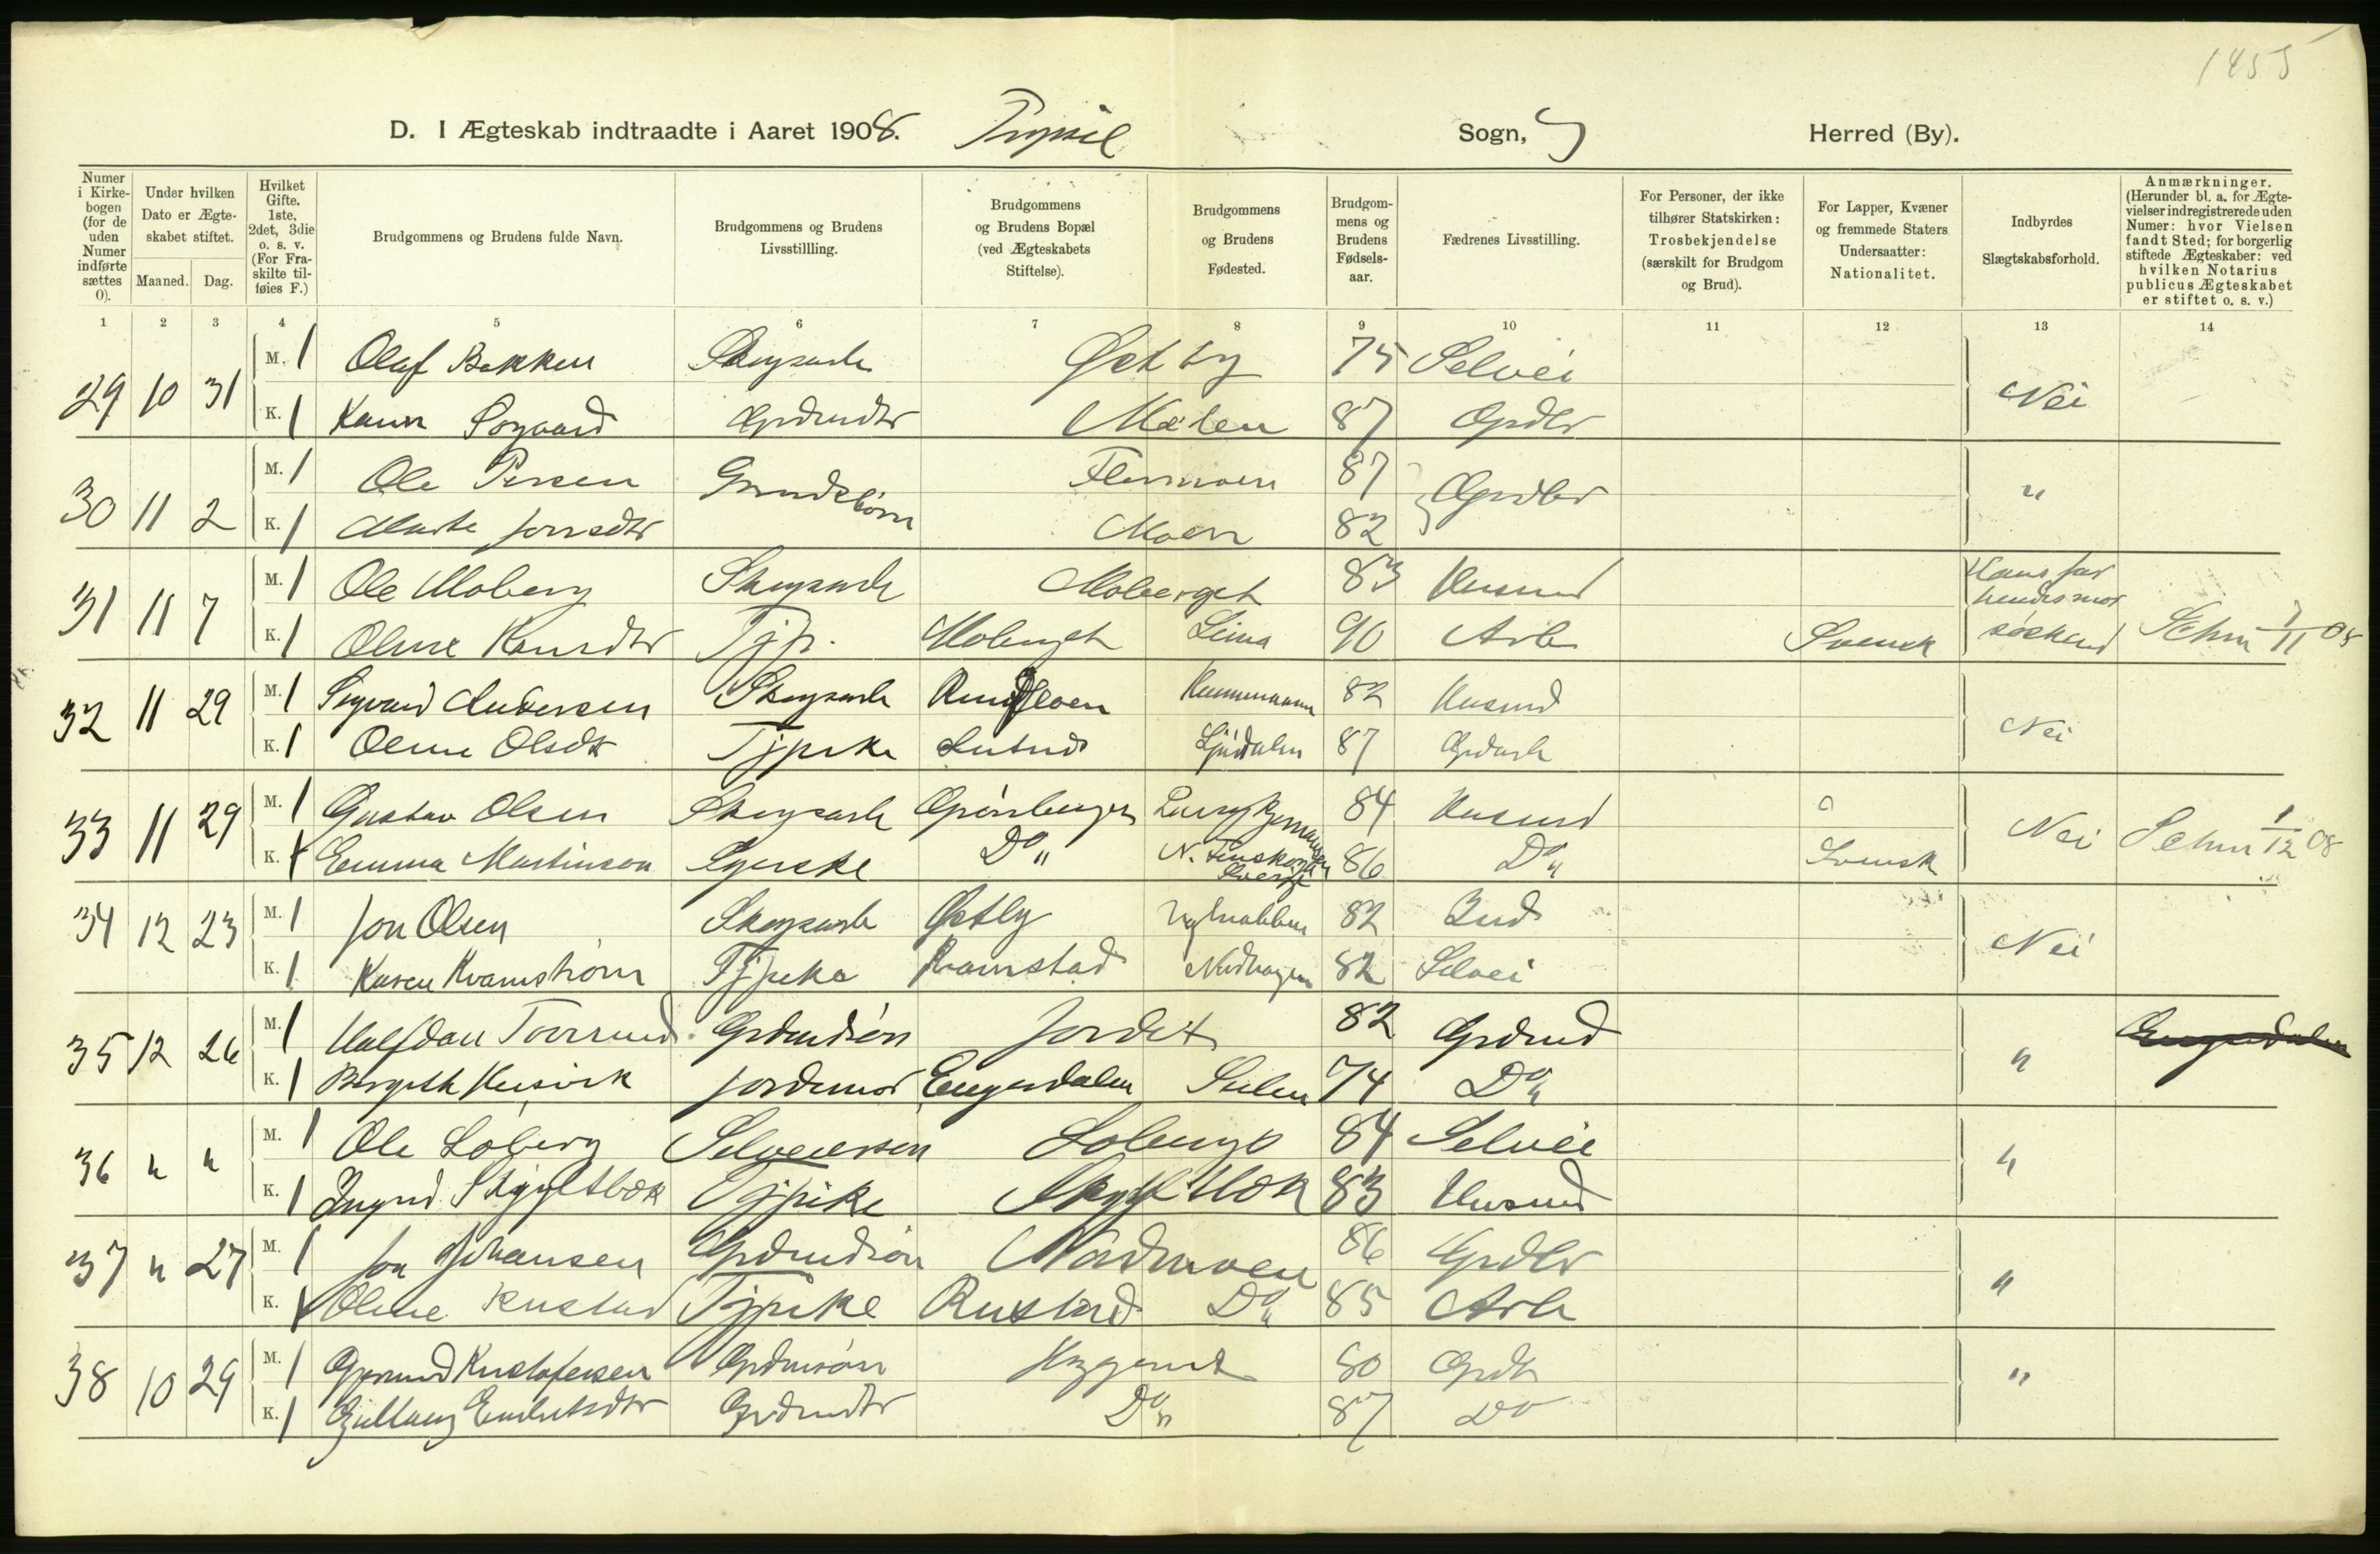 1455
D. I Ægteskab indtraadte i Aaret 1908. Trysil Sogn, Herred (By).
Numer i Kirke- bogen (for de uden Numer indførte sættes 0).
Under hvilken Dato er Ægte- skabet stiftet.
Maaned. Dag.
Hvilket Gifte. 1ste, 2det, 3die o. s. v. (For Fra- skilte til- føies F.)
Brudgommens og Brudens fulde Navn.
Brudgommens og Brudens Livsstillling.
Brudgommens og Brudens Bopæl (ved Ægteskabets Stiftelse).
Brudgommens og Brudens Fødested.
Brudgom- mens og Brudens Fødsels- aar.
Fædrenes Livsstilling.
For Personer, der ikke tilhører Statskirken: Trosbekjendelse (særskilt for Brudgom og Brud).
For Lapper, Kvæner og fremmede Staters Undersaatter: Nationalitet.
Indbyrdes Slægtskabsforhold.
Anmærkninger. (Herunder bl. a. for Ægte- vielser indregistrerede uden Numer: hvor Vielsen fandt Sted; for borgerlig stiftede Ægteskaber: ved hvilken Notarius publicus Ægteskabet er stiftet o. s. v.)
1 2 3 4 5 6 7 8 9 10 11 12 13 14
29 10 31 M. 1 Olaf Bakken Skogsarb Østby 75 Selvei Nei
K. 1 Karen Søgaard Grdmdtr Mølen 87 Grdbr
30 11 2 M. 1 Ole Persen Flermoen 87 Grdbr "
K. 1 Marte Jonsdtr Moen 82
31 11 7 M. 1 Ole Moberg Skogsarb Moberget 83 Husmd Hans far hendes mor søskend
K. 1 Oline Tjp. Moberget Lima 90 Arb Svensk Schm 7/11 08
32 11 29 M. 1 Sigvard Andersen Skogsarb 82 Husmd Nei
K. 1 Oline Olsdtr Tjpike Lutnes Ljørdalen 87 Grdarb
33 11 29 M. 1 Gustav Olsen Skogsarb Grønberget 84 Husmd Nei Schm 1/12 08
K. 1 Emma Martinson Syerske Do " N. Finskoga Sverige 86 Do " Svensk
34 12 23 M. 1 Jon Olsen Skogsarb Østby 82 Nei
K. 1 Karen Kvarnstrøm Tjpike Kvarnstad 82 Selvei
35 12 26 M. 1 Halfdan Grdmdsøn Jordet 82 Grdmd "
K. 1 Bergith Husvik Jordemor Engerdalen 74 Do "
36 " " M. 1 Ole Løberg Selveiersøn Løberget 84 Selvei "
K. 1 Ingrid Skjyltbæk Tjpike Skjyltbæk 83 Husmd
37 " 27 M. 1 Jon Johansen Grdmdsøn Nordmoen 86 Grdbr "
K. 1 Oline Rustad Tjpike Rustad Do " 85 Arb
38 10 29 M. 1 Kristofersen Grdmsøn 80 "
K. 1 Embretsdtr Grdmdtr Do " 87 Do